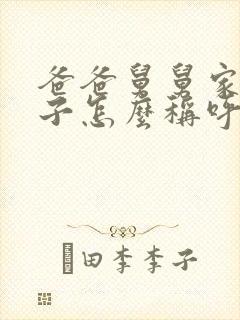 爸爸舅舅家
子怎麼稱呼
田李李子